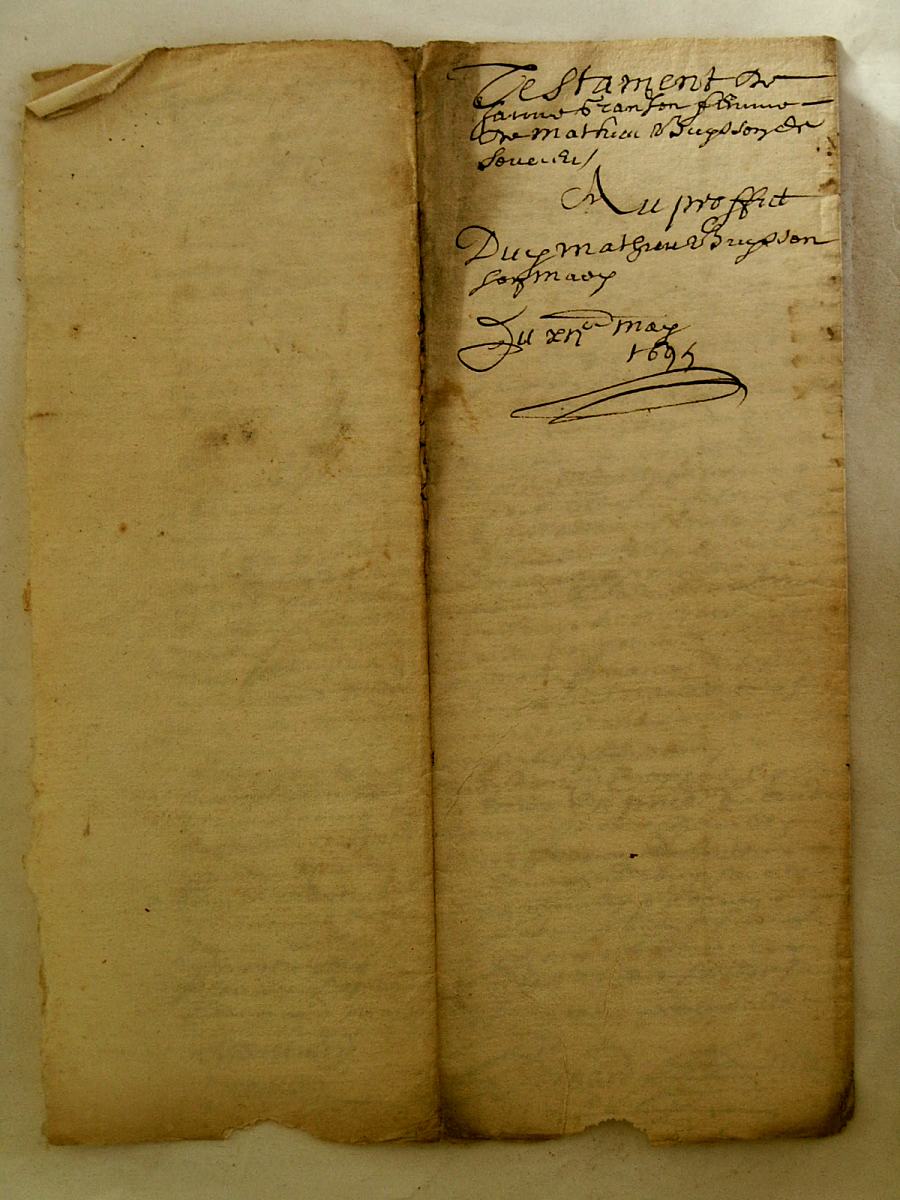 Testament de
Janne franson femme
de mathieu Buysson de
Au proffict
Duy mathieu Buysson
son mary
Du xne may
1695